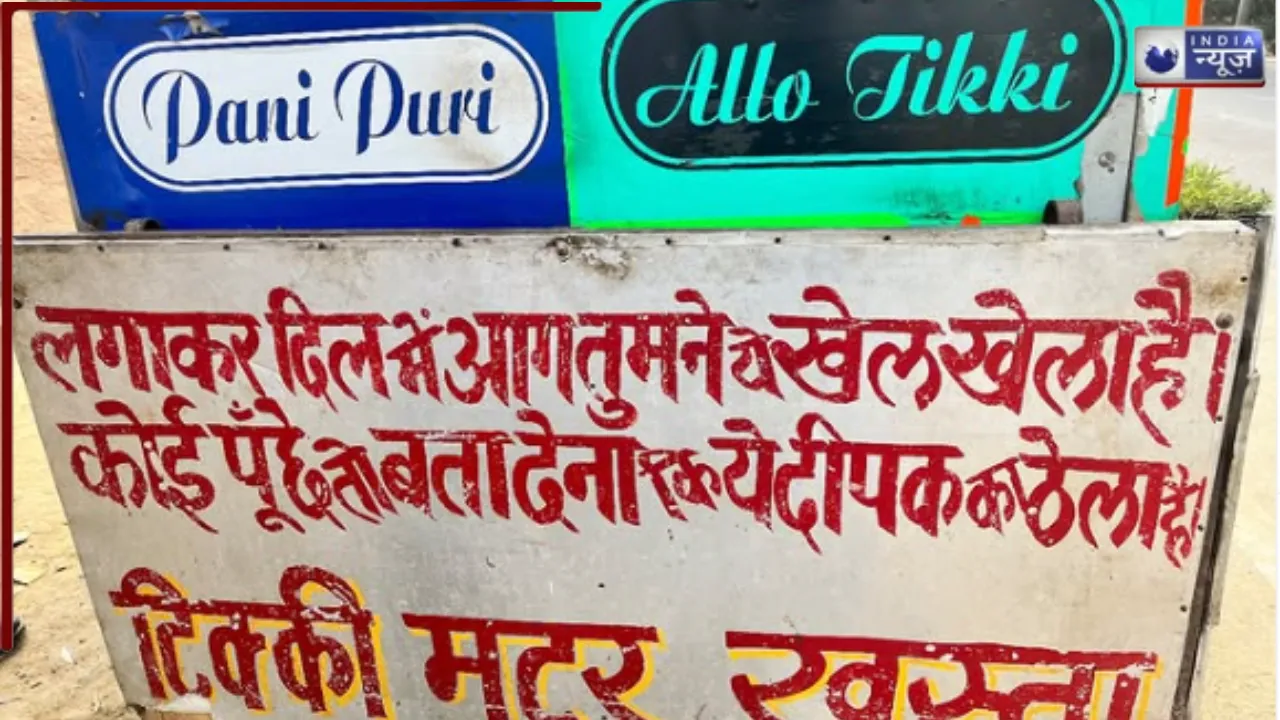 Pani Puri
Allo Tikki
INDIA
न्यूज़
लगाकर दिल में आग तुमने ये खेल खेला है।
कोई पूँछे तो बता देना कि ये दीपक का ठेला है।
टिक्की मटर खस्ता